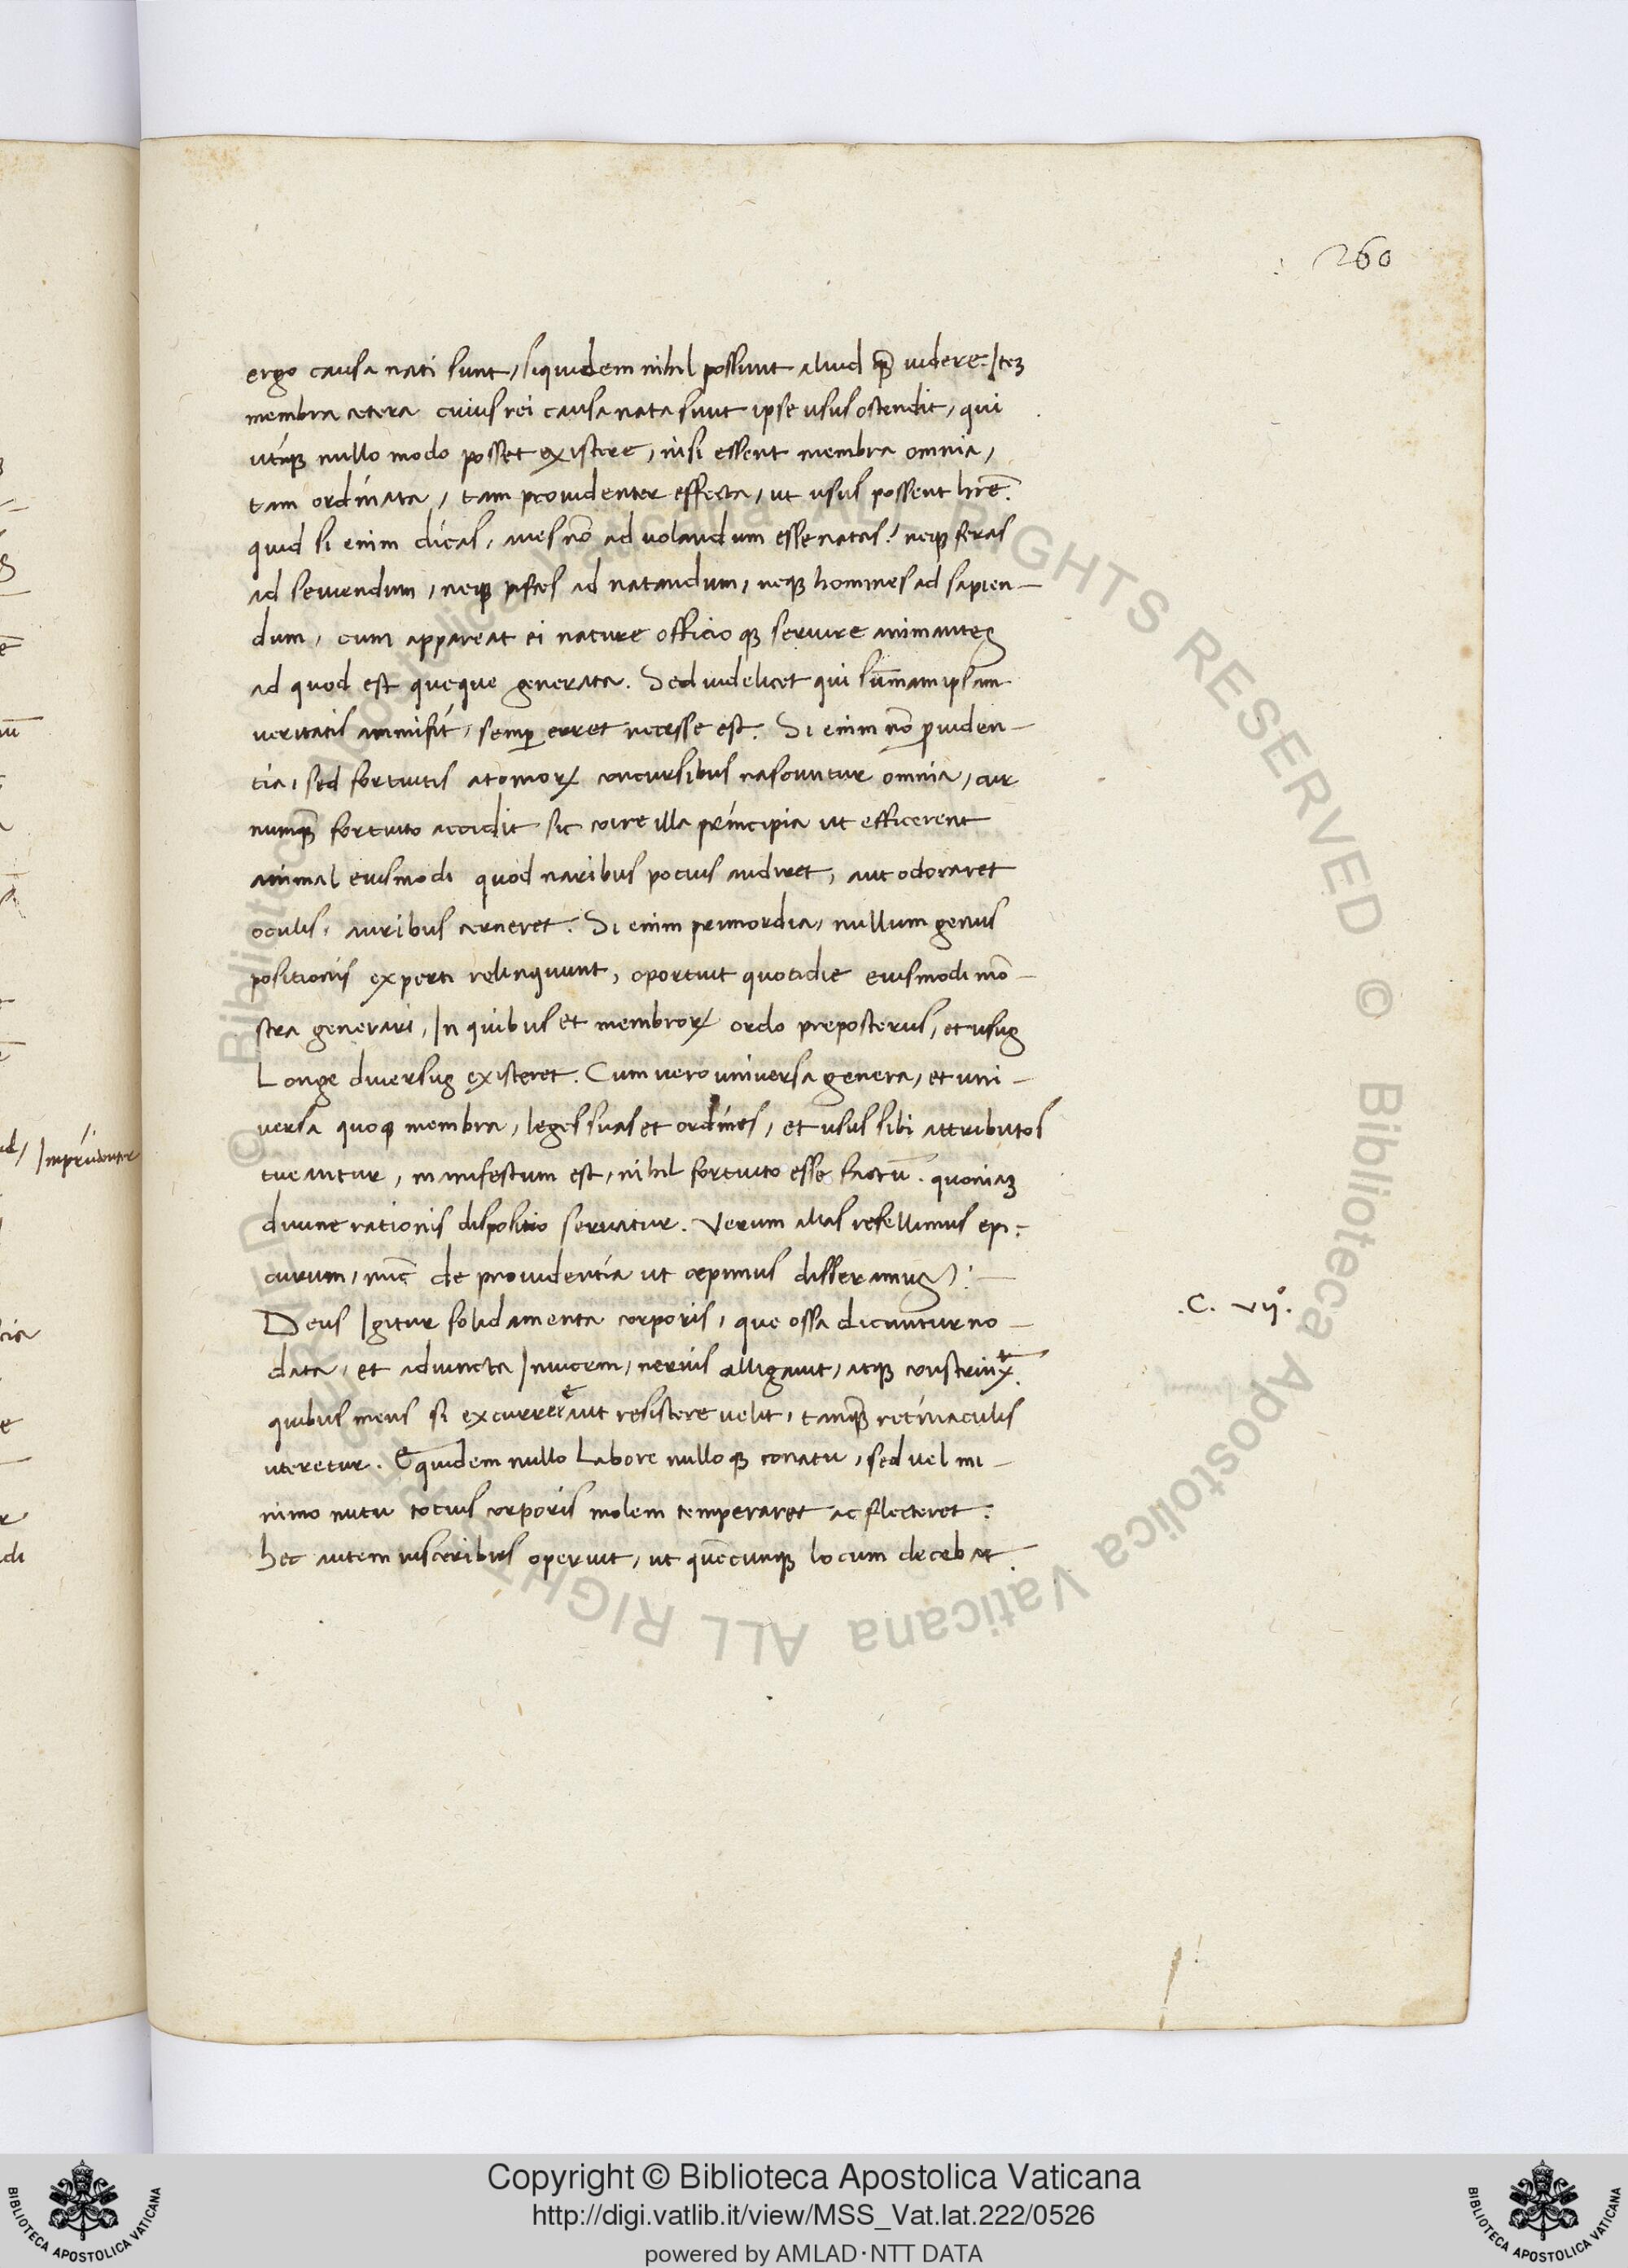 260
ergo causa nati sunt, siquidem nihil possunt aliud qȝ uidere. Iteȝ
membra cetera cuius rei causa nata sunt ipse usus ostendit, qui
utiqȝ nullo modo posset existere, nisi essent membra omnia,
tam ordinata, tam prouidenter effecta, ut usus possent hr̄e.
quid si enim dicas, aues nō ad uolandum esse natas? neqȝ feras
ad seuiendum, neqȝ pisces ad natandum, neqȝ homines ad sapien-
dum, cum appareat ei nature officioqȝ seruire animantes
ad quod est queque generata. Sed uidelicet qui sūmam ipsam
ueritatis ammisit, semꝑ erret necesse est. Si enim nō ꝓuiden-
tia, sed fortuitis atomoꝝ concursibus nascuntur omnia, cur
numqȝ fortuito accidit sic coire illa principia ut efficerent
animal eiusmodi quod naribus pocius audiret, aut odoraret
oculis, auribus cerneret. Si enim primordia, nullum genus
positionis experti relinquunt, oportuit quotidie eiusmodi mō-
stra generari, In quibus et membroꝝ ordo preposterus, et usus
Longe diuersus existeret. Cum uero universa genera, et uni-
versa quoqȝ membra, leges suas et ordines, et usus sibi attributos
tueantur, manifestum est, nihil fortuito esse factū. quoniaȝ
diuine rationis dispositio seruatur. Verum alias refellimus epi:
curum, nūc de prouidentia ut cepimus disseramus:
Deus Igitur solidamenta corporis, que ossa dicuntur no-
data, et adiuncta Inuicem, neruis alligauit, atqȝ constrinxt.
.C. vijº.
quibus mens si excurrere aut resistere uelit, tamqȝ retinaculis
uteretur. Equidem nullo Labore nulloqȝ conatu, sed uel mi-
nimo nutu totius corporis molem temperaret ac flecteret:
hec autem uisceribus operuit, ut quēcunqȝ locum decebat.
Imprudenter
Copyright © Biblioteca Apostolica Vaticana
http://digi.vatlib.it/view/MSS_Vat.lat.222/0526
powered by AMLAD·NTT DATA
BIBLIOTECA APOSTOLICA VATICANA
BIBLIOTECA APOSTOLICA VATICANA
© Biblioteca Apostolica Vaticana ALL RIGHTS RESERVED © Biblioteca Apostolica Vaticana ALL RIGHTS RESERVED